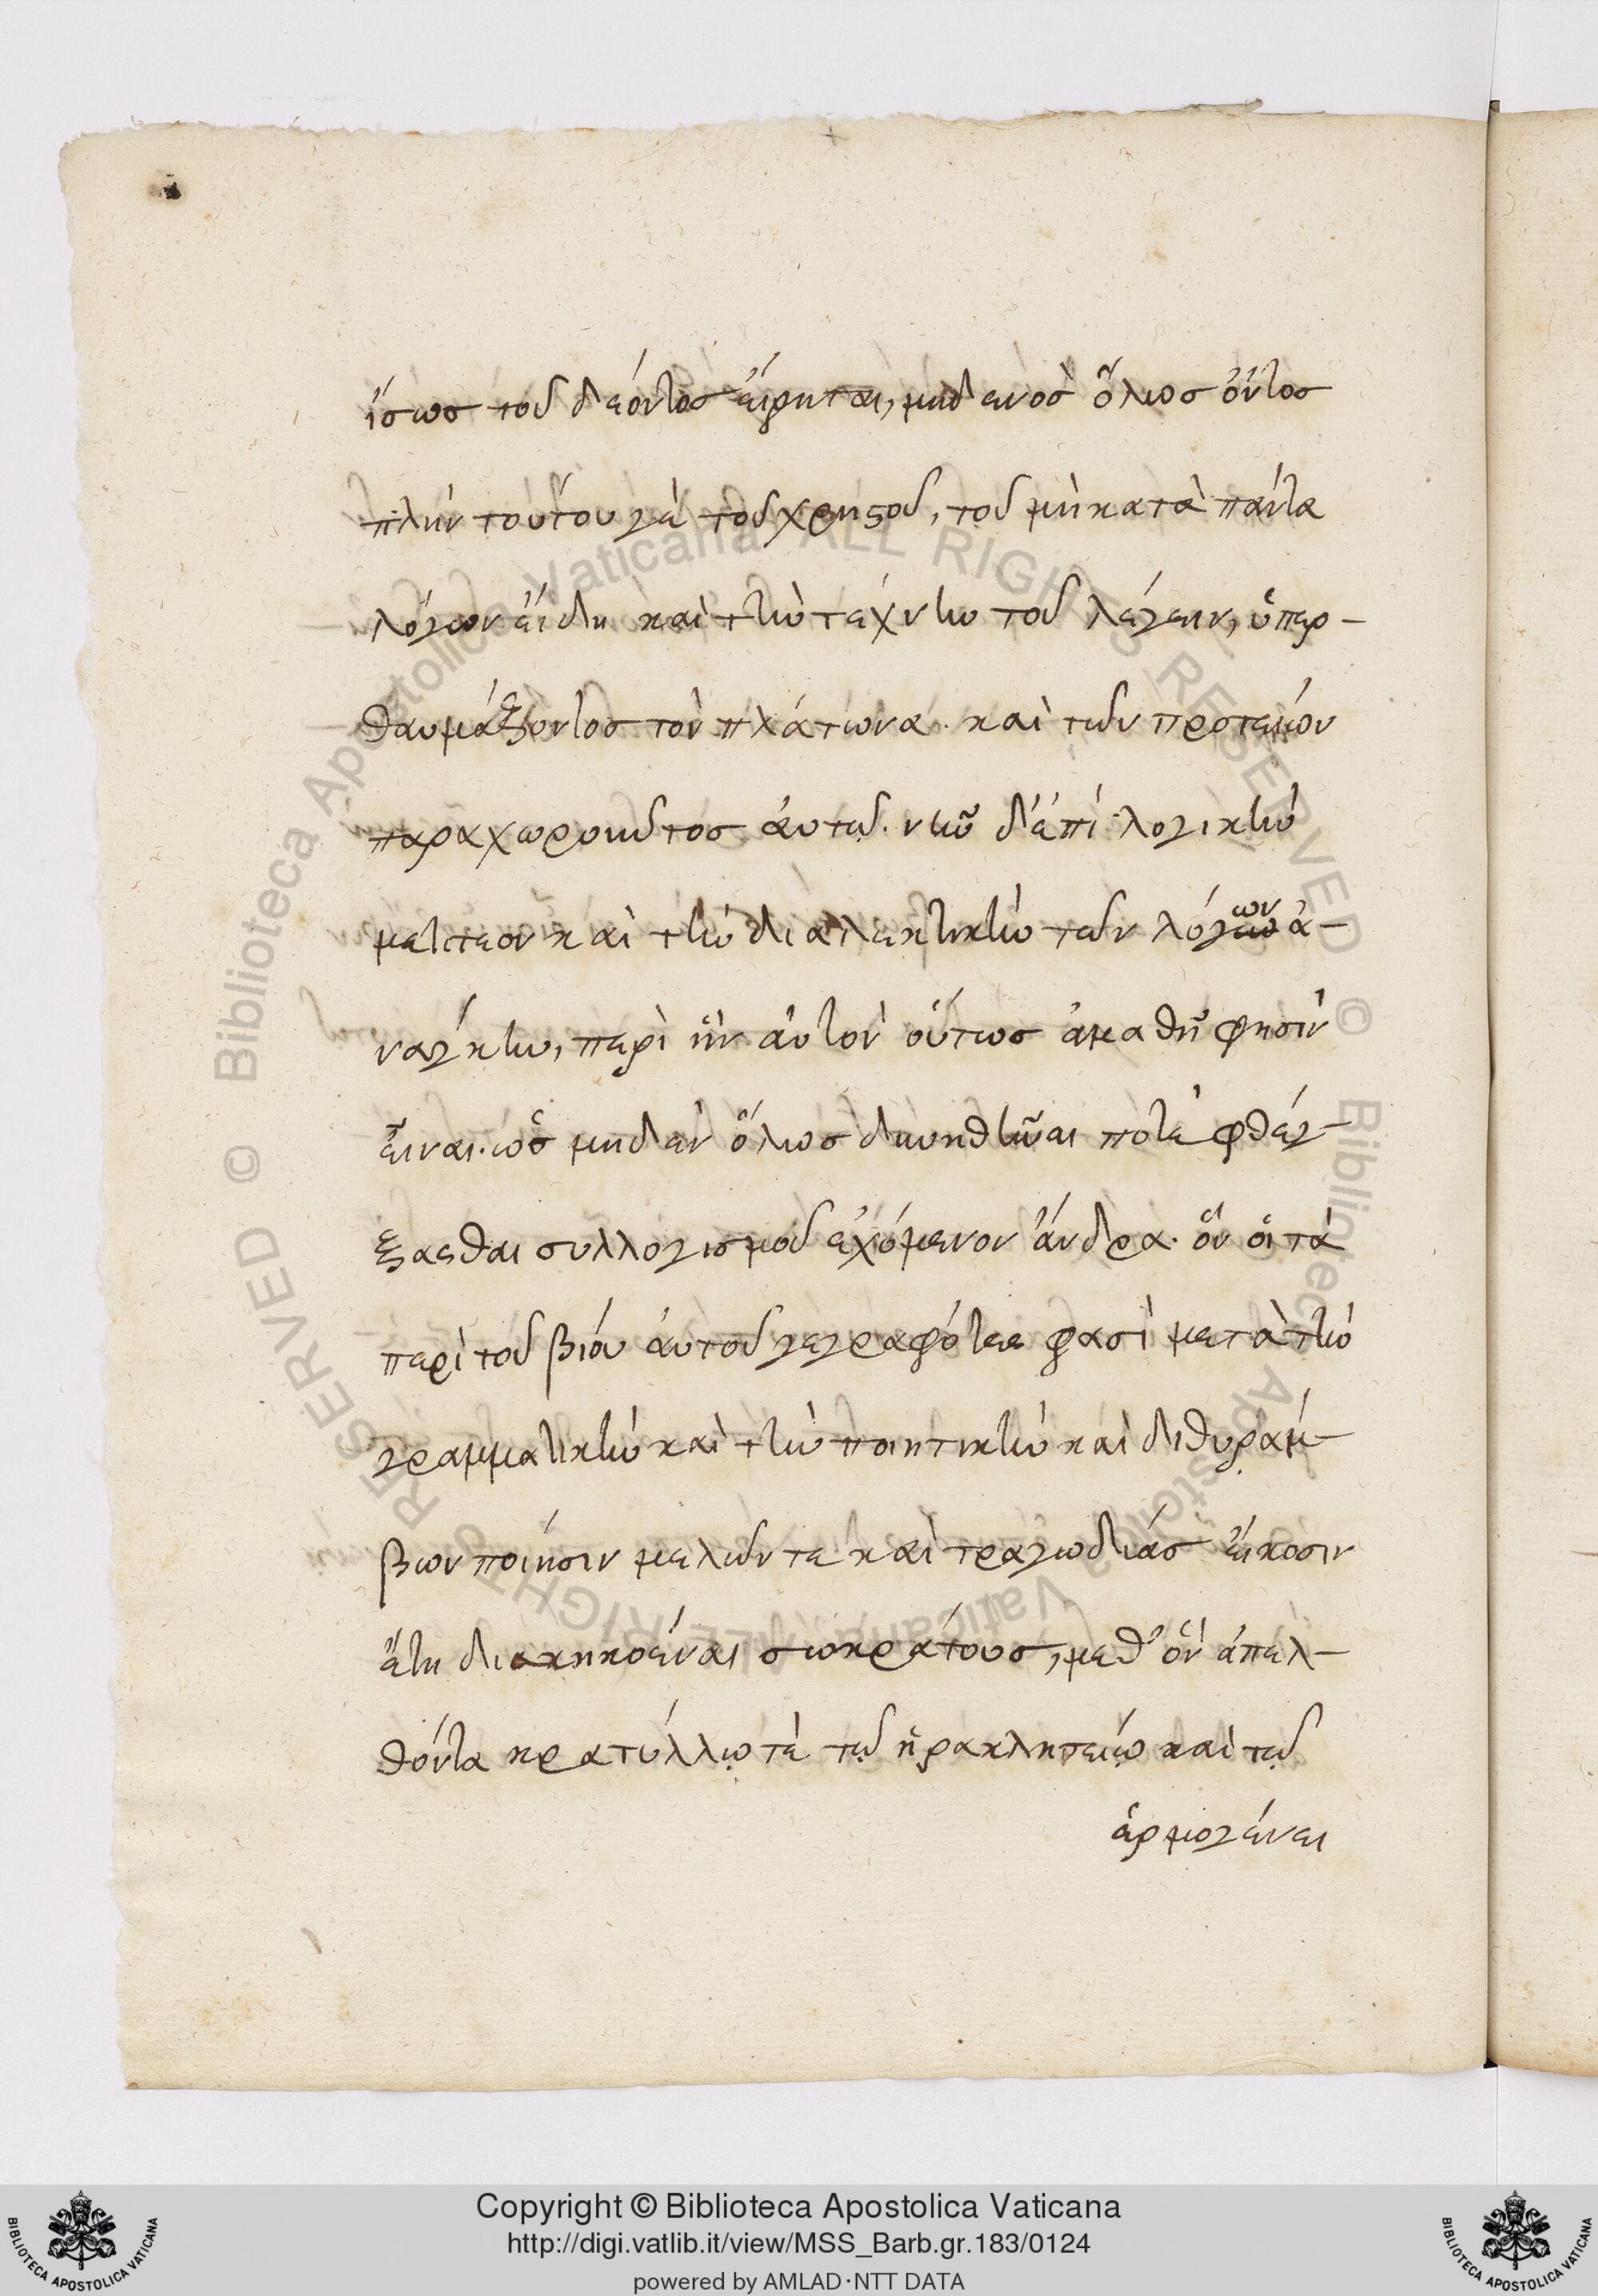 ἴσως τοῦ δέοντος εἴρηται, μηδενὸς ὅλως ὄντος
πλὴν τούτου γὲ τοῦ χρηστοῦ, τοῦ μὴ κατὰ πάντα
λόγων εἴδη καὶ τὴν τέχνην τοῦ λέγειν, ὑπερ-
θαυμάζοντος τὸν πλάτωνα. καὶ τῶν πρωτείων
παραχωροῦντος αὐτῷ. νῦν δ' ἐπὶ λογικὴν
μετιτέον καὶ τὴν διαλεκτικὴν τῶν λόγων ἀ-
νάγκην, περὶ ἣν αὐτὸν οὕτως ἀμαθῆ φησὶν
εἶναι. ὡς μηδὲν ὅλως δυνηθῆναι ποτὲ φθέγ-
ξασθαι συλλογισμοῦ ἐχόμενον ἄνδρα. ὃν οἱ τὰ
περὶ τοῦ βίου αὐτοῦ γεγραφότες φασὶ μετὰ τὴν
γραμματικὴν καὶ τὴν ποιητικὴν καὶ διθυράμ-
βων ποίησιν μελῶν τε καὶ τραγωδίας εἴκοσιν
ἔτη διακηκοέναι σωκράτους, μεθ' ὃν ἀπελ-
θόντα κρατύλλῳ τὲ τῷ ἡρακλητείῳ καὶ τῷ
ἑρμογένει
© Biblioteca Apostolica Vaticana ALL RIGHTS RESERVED © Biblioteca Apostolica Vaticana ALL RIGHTS RESERVED
Copyright © Biblioteca Apostolica Vaticana
http://digi.vatlib.it/view/MSS_Barb.gr.183/0124
powered by AMLAD·NTT DATA
BIBLIOTECA APOSTOLICA VATICANA
BIBLIOTECA APOSTOLICA VATICANA